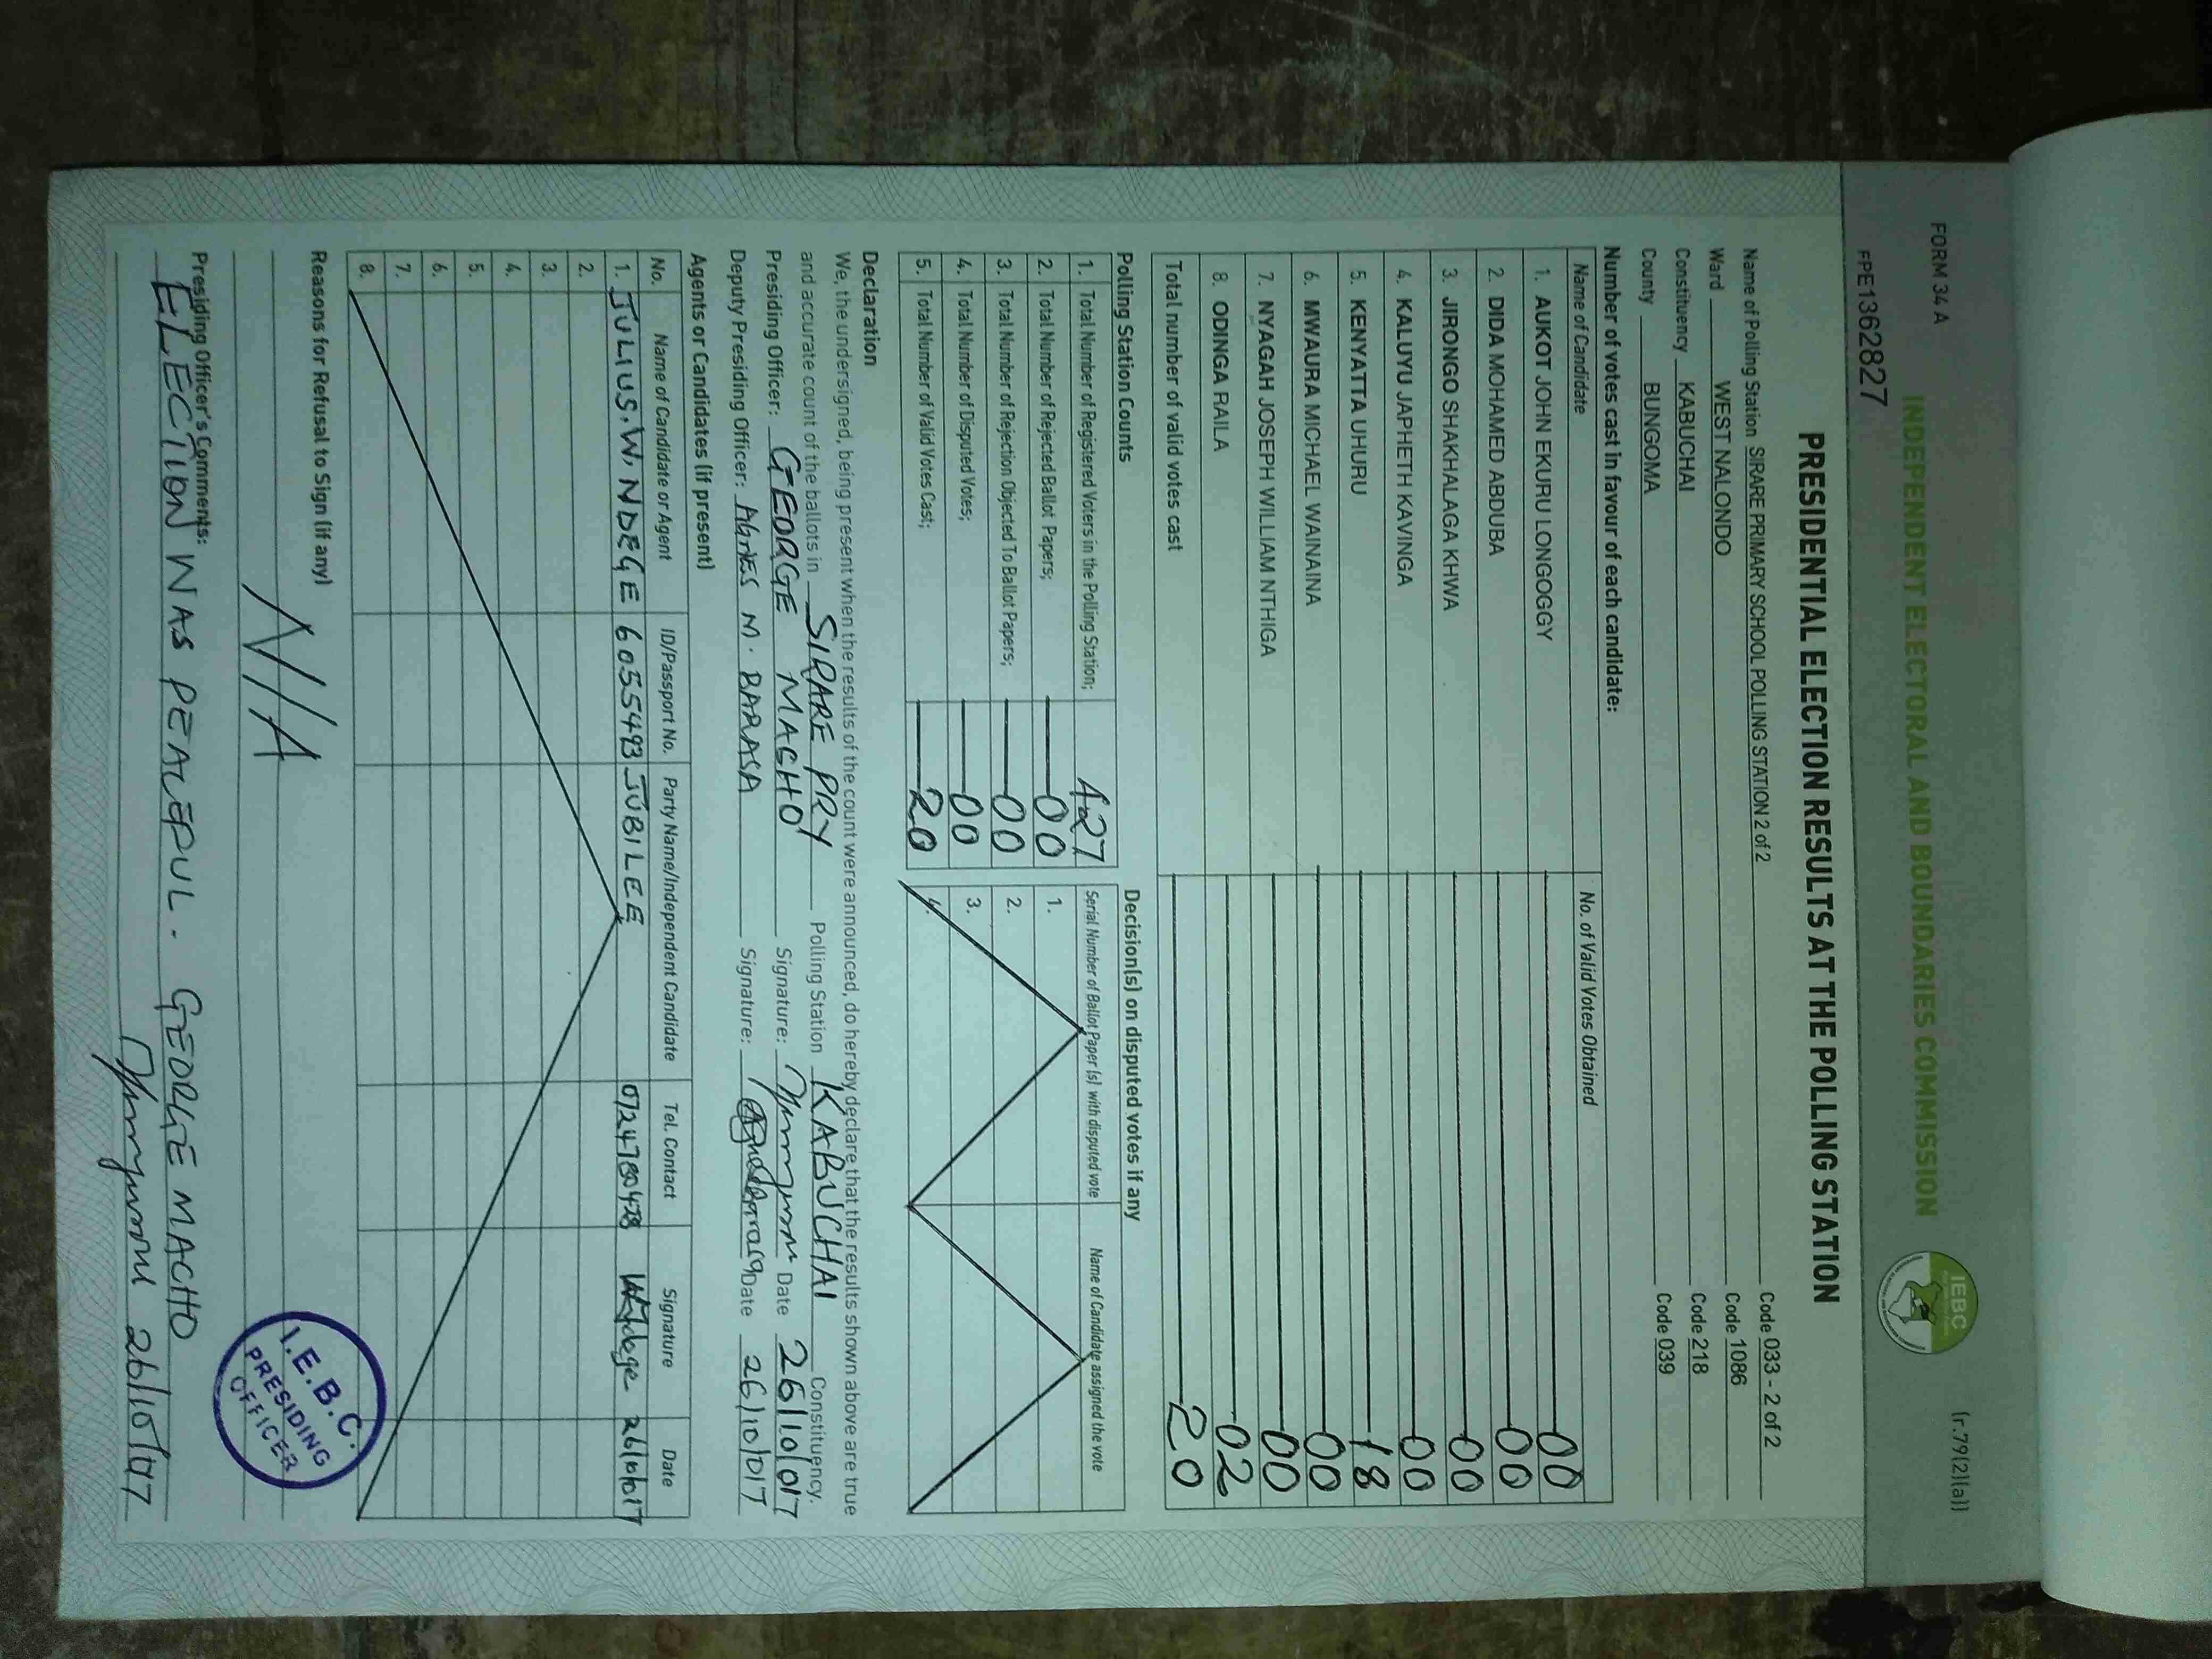 FORM 34 A
(r.79(2)(a))
INDEPENDENT ELECTORAL AND BOUNDARIES COMMISSION
IEBC
FPE1362827
PRESIDENTIAL ELECTION RESULTS AT THE POLLING STATION
Name of Polling Station SIRARE PRIMARY SCHOOL POLLING STATION 2 of 2 Code 033 - 2 of 2
Ward WEST NALONDO Code 1086
Constituency KABUCHAI Code 218
County BUNGOMA Code 039
Number of votes cast in favour of each candidate:
Name of Candidate No. of Valid Votes Obtained
1. AUKOT JOHN EKURU LONGOGGY 00
2. DIDA MOHAMED ABDUBA 00
3. JIRONGO SHAKHALAGA KHWA 00
4. KALUYU JAPHETH KAVINGA 00
5. KENYATTA UHURU 18
6. MWAURA MICHAEL WAINAINA 00
7. NYAGAH JOSEPH WILLIAM NTHIGA 00
8. ODINGA RAILA 02
Total number of valid votes cast 20
Polling Station Counts Decision(s) on disputed votes if any
1. Total Number of Registered Voters in the Polling Station; 427 Serial Number of Ballot Paper (s) with disputed vote Name of Candidate assigned the vote
2. Total Number of Rejected Ballot Papers; 00 1.
3. Total Number of Rejection Objected To Ballot Papers; 00 2.
4. Total Number of Disputed Votes; 00 3.
5. Total Number of Valid Votes Cast; 20 4.
Declaration
We, the undersigned, being present when the results of the count were announced, do hereby declare that the results shown above are true
and accurate count of the ballots in SIRARE PRY Polling Station KABUCHAI Constituency.
Presiding Officer: GEORGE MACHO Signature: Date 26/10/017
Deputy Presiding Officer: AGNES M. BARASA Signature: Date 26/10/017
Agents or Candidates (if present)
No. Name of Candidate or Agent ID/Passport No. Party Name/Independent Candidate Tel. Contact Signature Date
1. JULIUS.W.NDEGE 6055493 JUBILEE 26/10/017
2.
3.
4.
5.
6.
7.
8.
Reasons for Refusal to Sign (if any)
N/A
I.E.B.C.
PRESIDING
OFFICER
Presiding Officer's Comments:
ELECTION WAS PEACEPUL. GEORGE MACHO
26/10/017